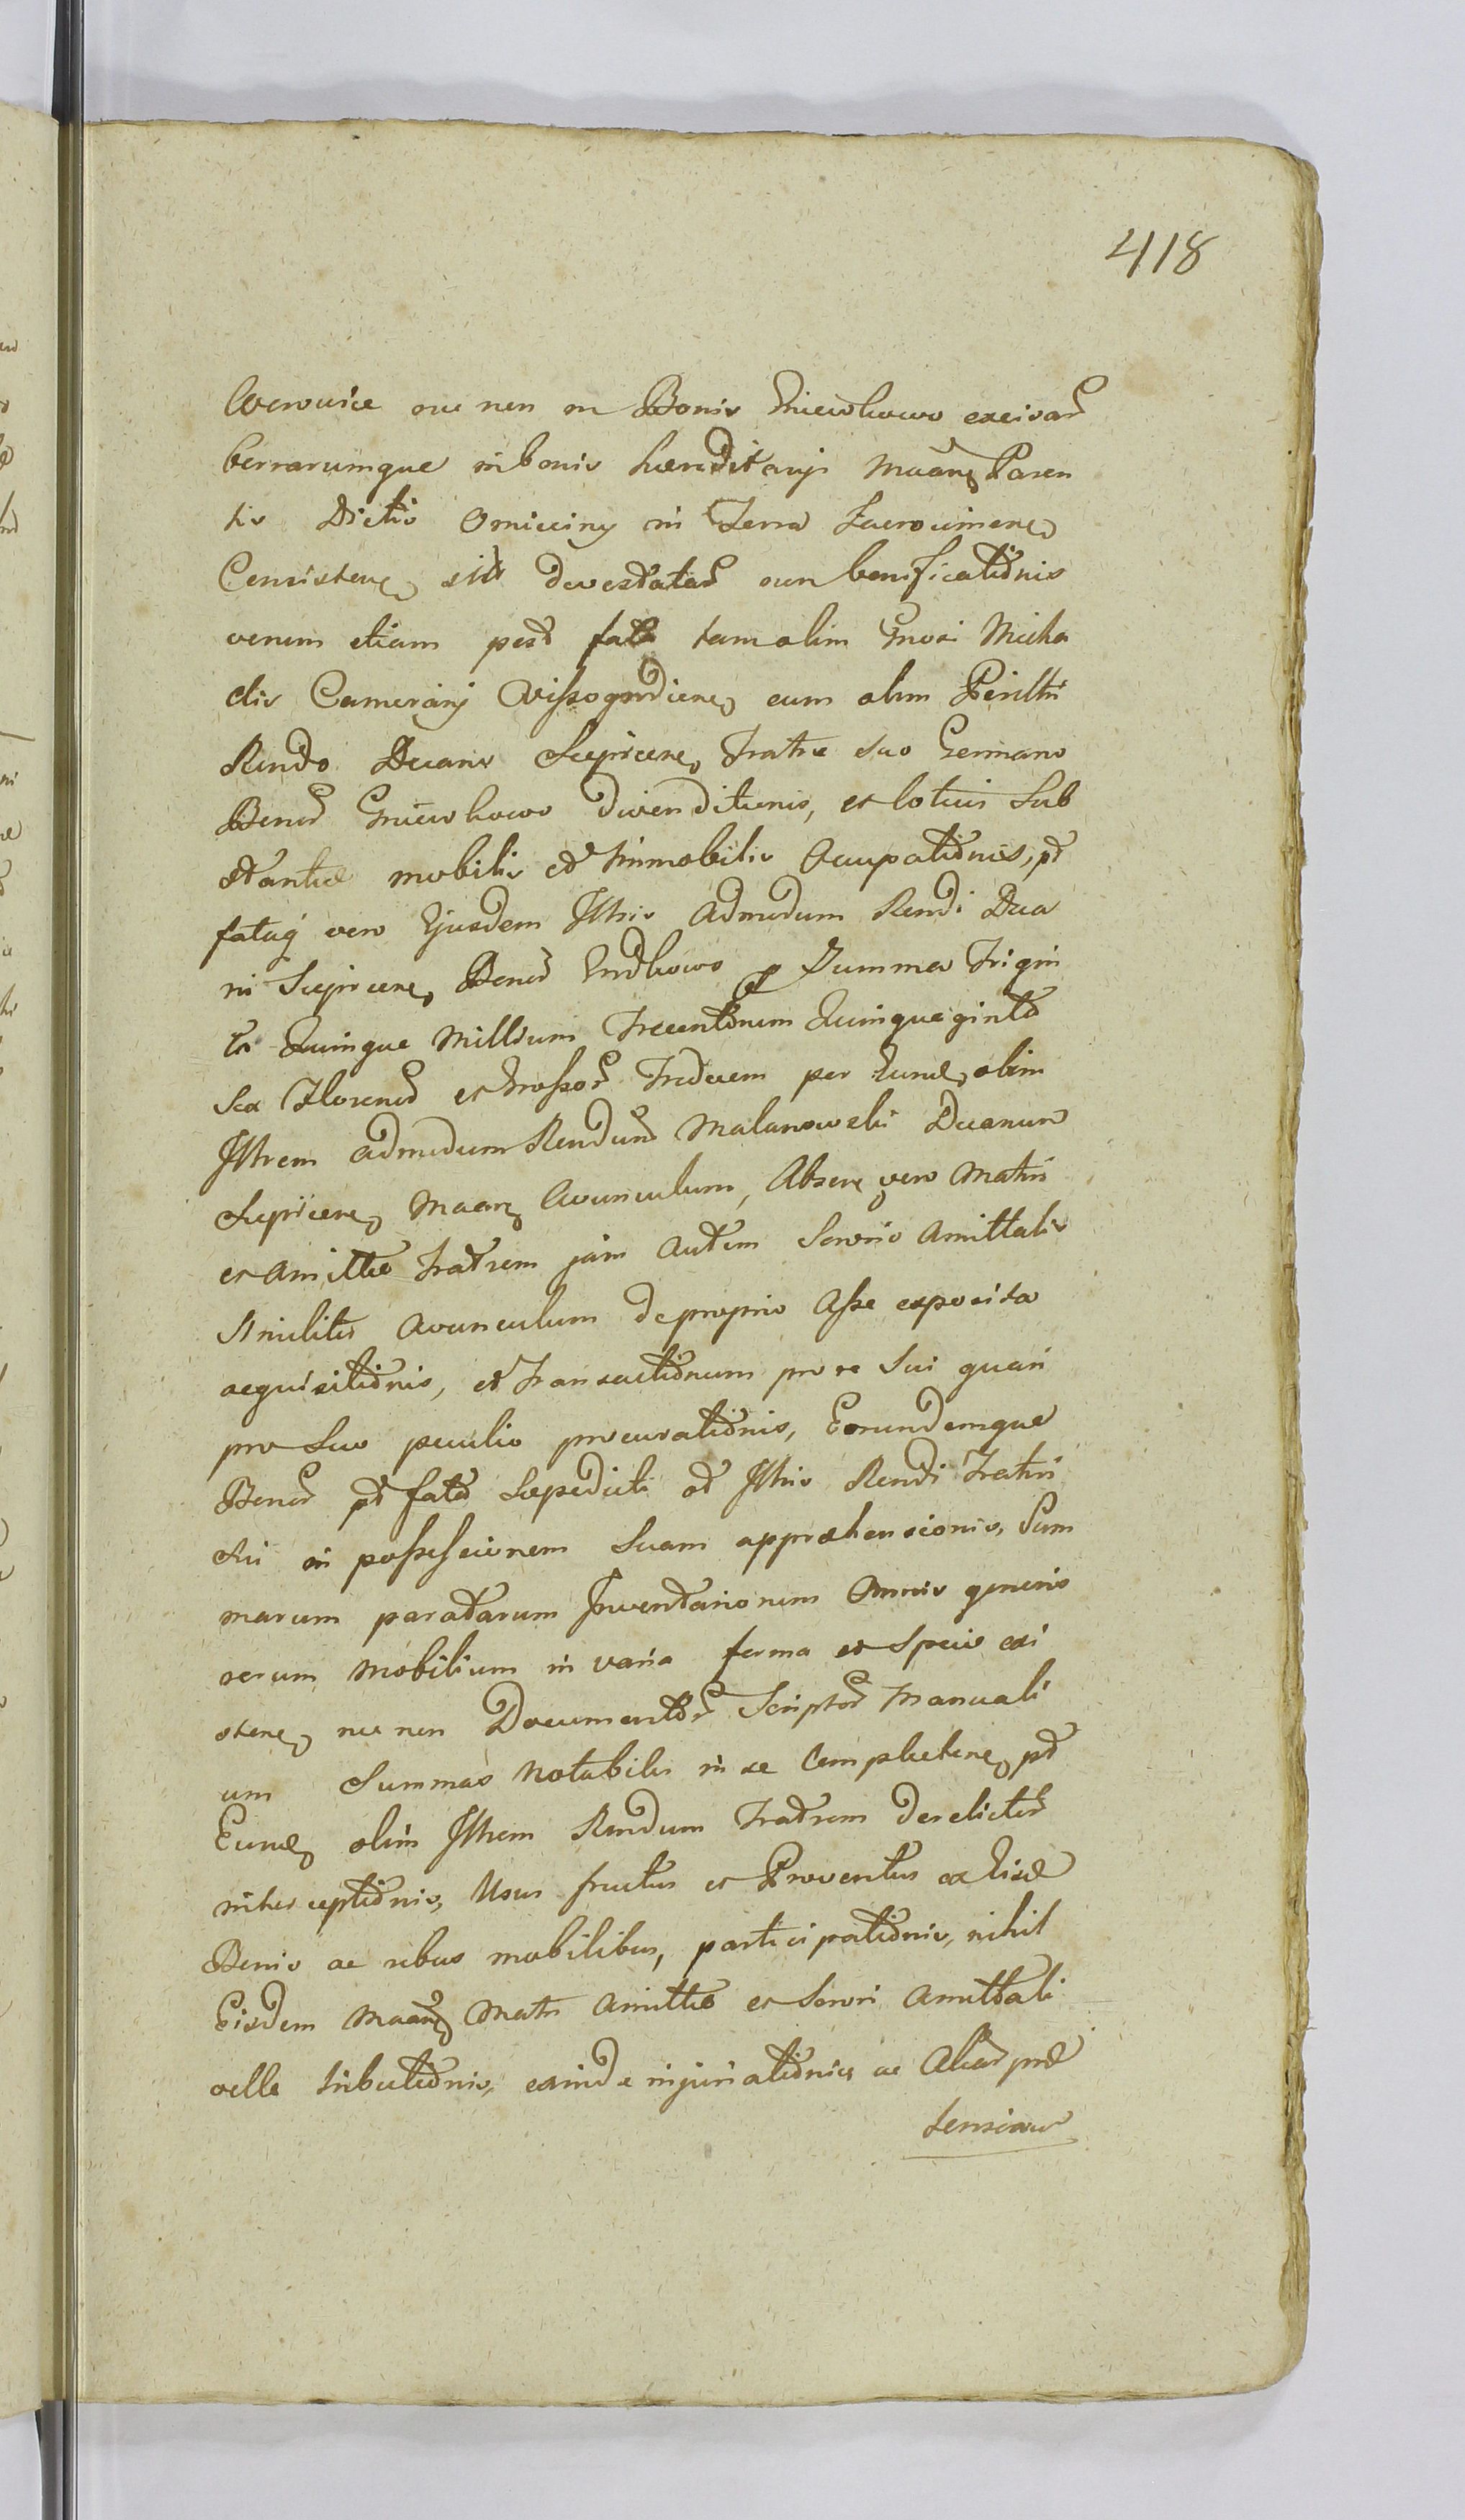 418
nec non in Bonis Gniewkowo
in bonis hereditariis Parentis
Dictis Omieciny in Terra Zacrocimens
Consistens devastatar non bonificationis
verum etiam post fata tam olim Gnosi Micha
elis Camerarii Wissogrodiens cum olim Perillri
Rendo Decano Sieprcens Fratre suo Germano
Bonor Gniewkowo divenditionis, et totius Sub
stantiae mobilis et Immobilis Occupationis, pt
fatus vero Ejusdem Illris admodum Rendi Deca
ni Sieprcens Bonor p Summa Trigin
ta Quinque Millium Trecentorum Quinquaginta
Sex Florenor et Grossor Tredecem per Eund olim
Illrem admodum Rendum Malanowski Decanum
Sieprcens Avunculum, vero Matris
et Amittae Fratrem jam autem Amittalis
Similiter Avunculum de proprio Asse exposita
acquisitionis, et Transactionum pro re Sui quasi
pro Suo peculio procurationis, Eorundemque
Bonor pt fata Saepedicti ad Illris Rendi Fratris
Sui in possessionem Suam appraehensionis, Sum
marum paratarum Inventariorum Omnis generis
rerum Mobilium in varia forma et Specie exi
stens nec non Documentor Scriptor Manuali
um Summas Notabiles in se Complectens pt
Eund olim Illrem Rendum Fratrem derelictor
interceptionis, Usus fructus et Proventus ex Eisd
Bonis ac rebus mobilibus, participationis, nihil
Eisdem Matri Amittae et Sorori Amittali
velle tributionis, exinde injuriationis ac Aliar prae
tensionum